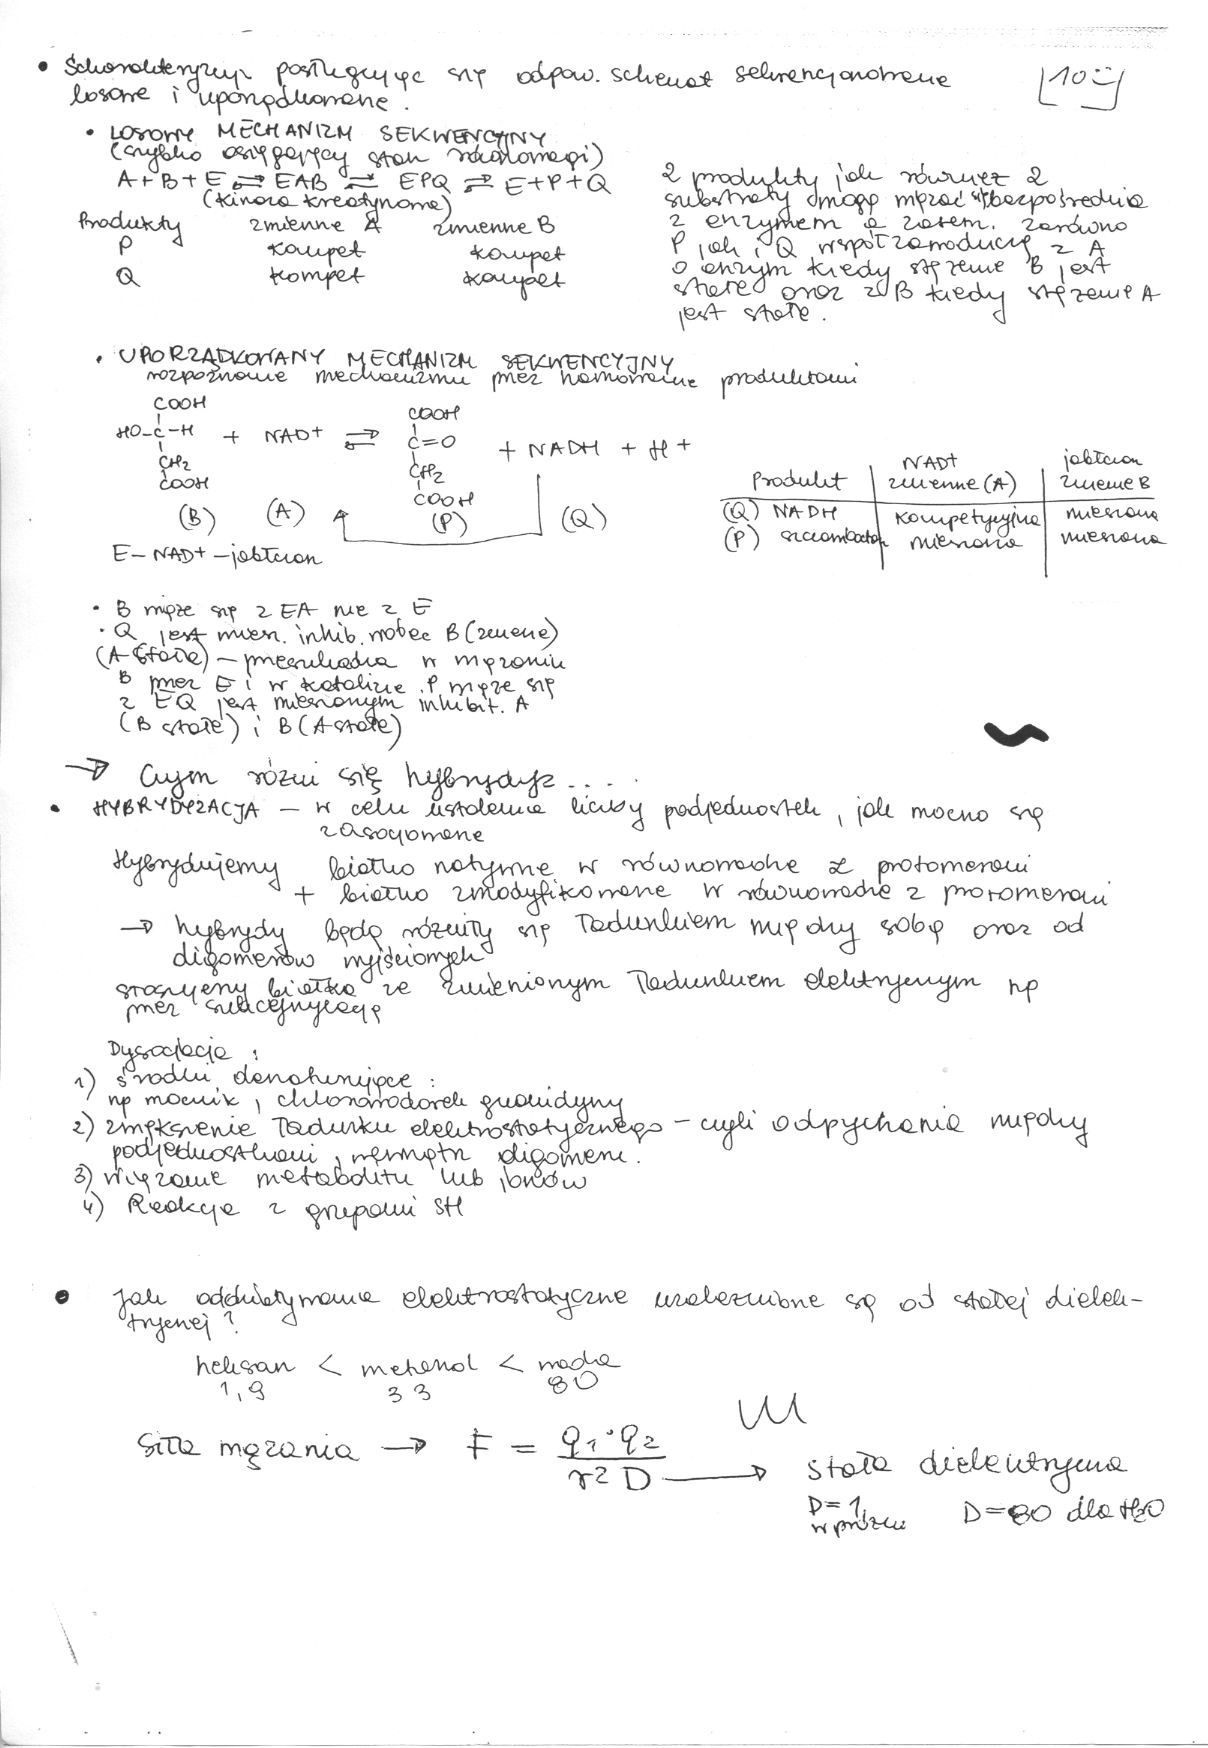 • Scharakteryzuj posługując się odpow. schemat sekwencjonowane
losowe i uporządkowane.
10
• LOSOWY MECHANIZM SEKWENCYJNY
(szybko osiągający stan równowagi)
A + B + E ⇌ EAB ⇌ EPQ ⇌ E + P + Q
(kinaza kreatynowa)
Produkty zmienne A zmienne B
P kompet kompet
Q kompet kompet
2 produkty jak również 2
substraty mogą wiązać się bezpośrednio
z enzymem a zatem. zarówno
P jak i Q współzawodniczą z A
o enzym kiedy stężenie B jest
stałe oraz z B kiedy stężenie A
jest stałe.
• UPORZĄDKOWANY MECHANIZM SEKWENCYJNY
rozpoznanie mechanizmu przez hamowanie produktami
COOH
HO-C-H
CH2
COOH
+ NAD+ ⇌
COOH
C=O
CH2
COOH
+ NADH + H+
(B) (A) (P) (Q)
E-NAD+-jabłczan
Produkt NAD+ zmienne (A) jabłczan zmienne B
(Q) NADH kompetycyjna mieszana
(P) szczawiooctan mieszana mieszana
• B wiąże się z EA nie z E
• Q jest miesz. inhib. wobec B (zmienne)
(A stałe) – przeszkadza w wiązaniu
B przez E i w katalizie. P wiąże się
z EQ jest mieszanym inhibit. A
(B stałe) i B (A stałe)
→ Czym różni się hybrydyz....
• HYBRYDYZACJA – w celu ustalenia liczby podjednostek, jak mocno się
zasocjowane
Hybrydujemy białko natywne w równowadze z protomerami
+ białko zmodyfikowane w równowadze z protomerami
→ hybrydy będą różniły się ładunkiem między sobą oraz od
oligomerów wyjściowych
stosujemy białko ze zmienionym ładunkiem elektrycznym np
przez sukcynylację
Dysocjacja:
1) środki denaturujące:
np mocznik, chlorowodorek guanidyny
2) zwiększenie ładunku elektrostatycznego – czyli odpychania między
podjednostkami, wewnątrz oligomeru.
3) wiązanie metabolitu lub jonów
4) Reakcja z grupami SH
• Jak oddziaływania elektrostatyczne uzależnione są od stałej dielek-
trycznej?
heksan < metanol < woda
1,9 33 80
siła wiązania → F = q1·q2 / r2 D → stała dielektryczna
D=1, w próżni D=80 dla H2O